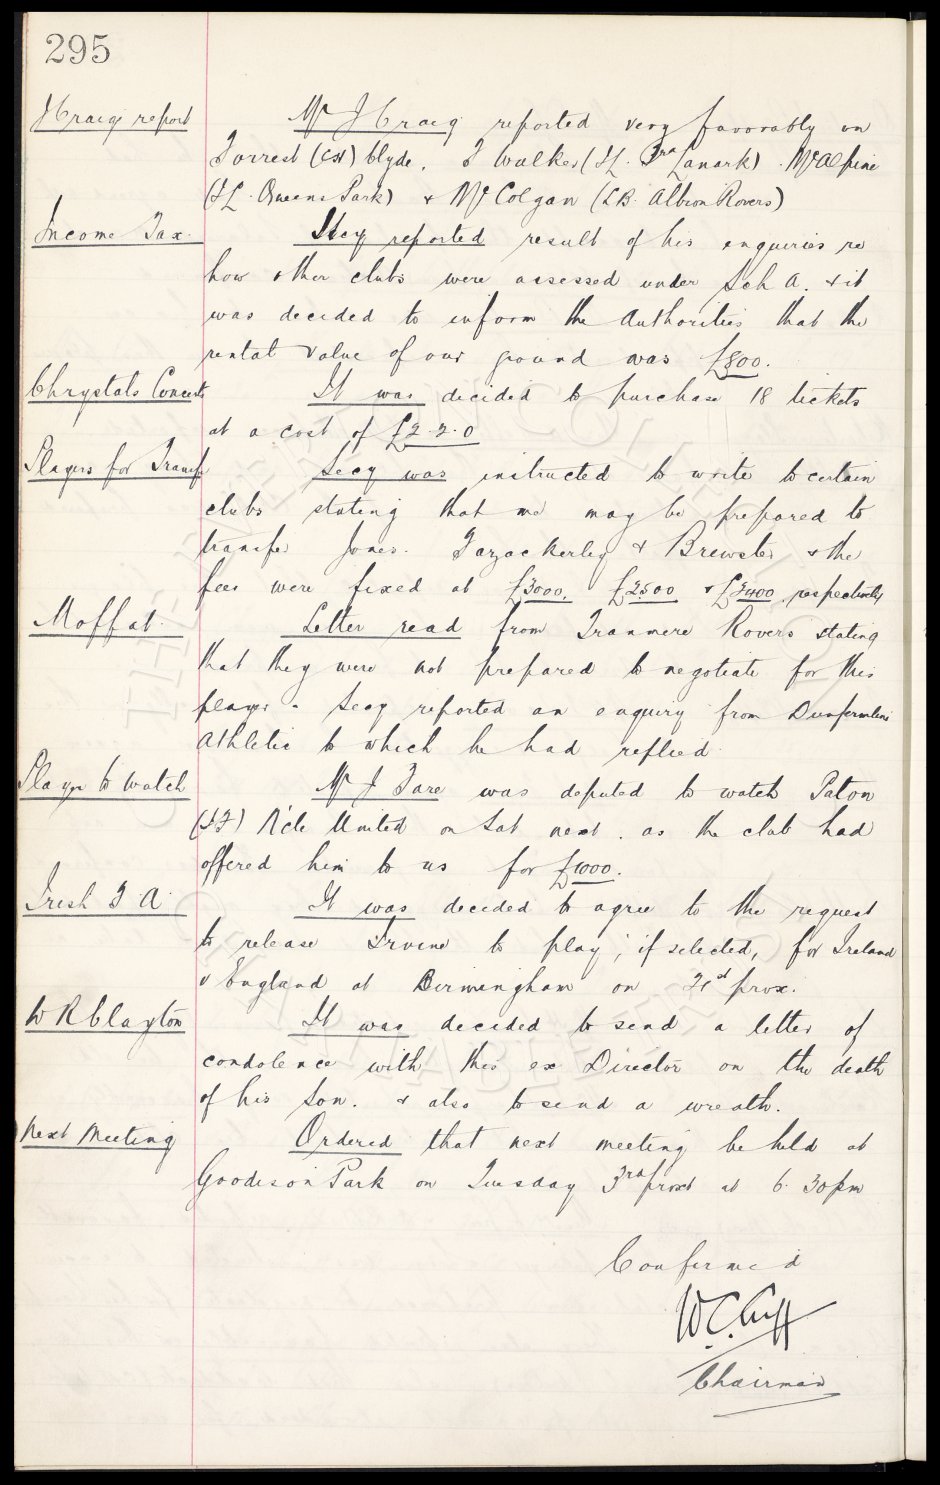 295
J Craigs report
Mr J Craig reported very favorably on
Forrest (CH) Clyde. T Walker (IL. 3rd Lanark). McAlpine
(IL. Queens Park) & McColgan (LB. Albion Rovers)
Income Tax.
Secy reported result of his enquiries re
how other clubs were assessed under Sch A. & it
was decided to inform the Authorities that the
rental value of our ground was £800.
Chrystals Concerts
It was decided to purchase 18 tickets
at a cost of £2.2.0
Players for Transfer
Secy was instructed to write to certain
clubs stating that we may be prepared to
transfer Jones. Fazackerley & Brewster & the
fees were fixed at £3000. £2500 & £2400 respectively
Moffat.
Letter read from Tranmere Rovers stating
that they were not prepared to negotiate for this
player. Secy reported an enquiry from Dunfermline
Athletic to which he had replied.
Player to Watch
Mr J Fare was deputed to watch Paton
N'cle United on Sat next. as the club had
offered him to us for £1000.
Irish F.A.
It was decided to agree to the request
to release Irvine to play, if selected, for Ireland
v England at Birmingham on 21st prox.
W R Clayton
It was decided to send a letter of
condolence with this ex Director on the death
of his Son. & also to send a wreath.
Next Meeting
Ordered that next meeting be held at
Goodison Park on Tuesday 3rd prox at 6.30pm
Confirmed
W.C. Cuff
Chairman